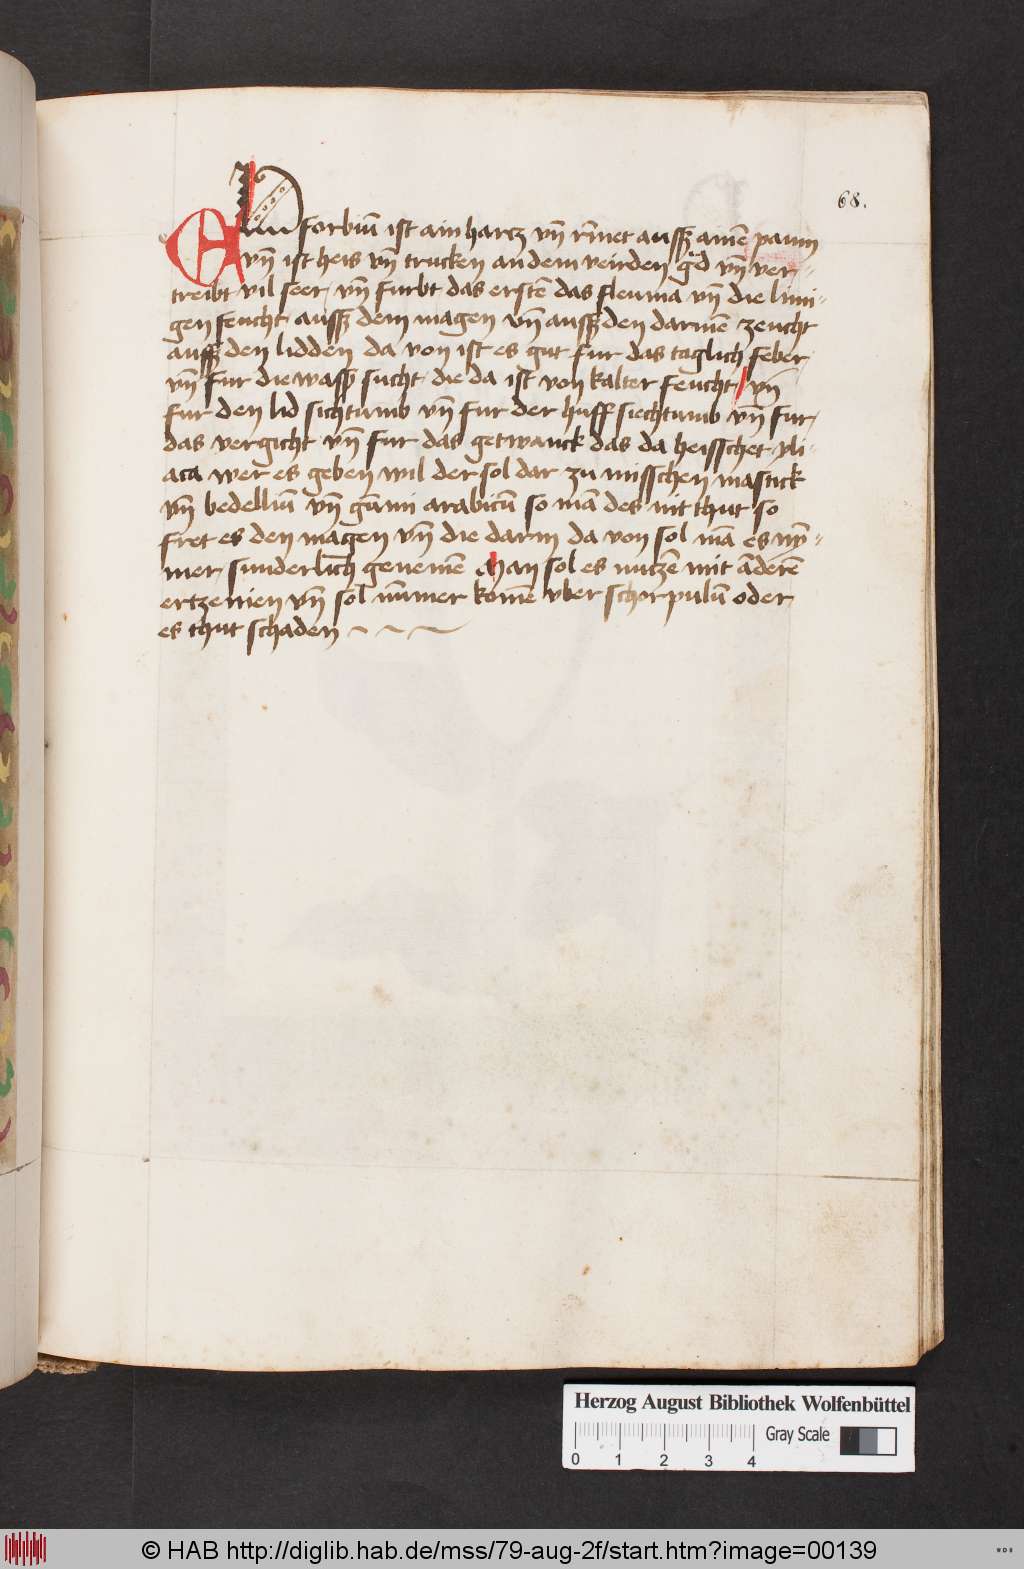 68.
Eufforbiū ist ain harcz vn̄ rīnet aussz ainē paum
vn̄ ist heis vn̄ trucken an dem vierden gͦd vn̄ ver-
treibt vil seer. vn̄ furbt das erstē das fleuma vn̄ die limi-
gen feucht aussz dem magen vn̄ aussz den darmē zeucht
aussz den lidden da von ist es gut fur das taglich feber.
vn̄ fur die wassz sucht. die da ist von kalter feucht / vn̄
fur den lid sichtumb vn̄ fur der huff siechtumb vn̄ fur.
das vergicht vn̄ fur das getwanck das da heisschet yli-
aca wer es geben wil der sol dar zu misschen mastick
vn̄ bedelliū vn̄ gūmi arabicū so mā des nit thut so
fret es den magen vn̄ die darm da von sol mā es nȳ-
mer. sunderlich genemē Man sol es nuczē mit āderē
erczenien vn̄ sol nīmer komē vber schorpulū oder.
es thut schaden
Herzog August Bibliothek Wolfenbüttel
Gray Scale
0 1 2 3 4
© HAB http://diglib.hab.de/mss/79-aug-2f/start.htm?image=00139